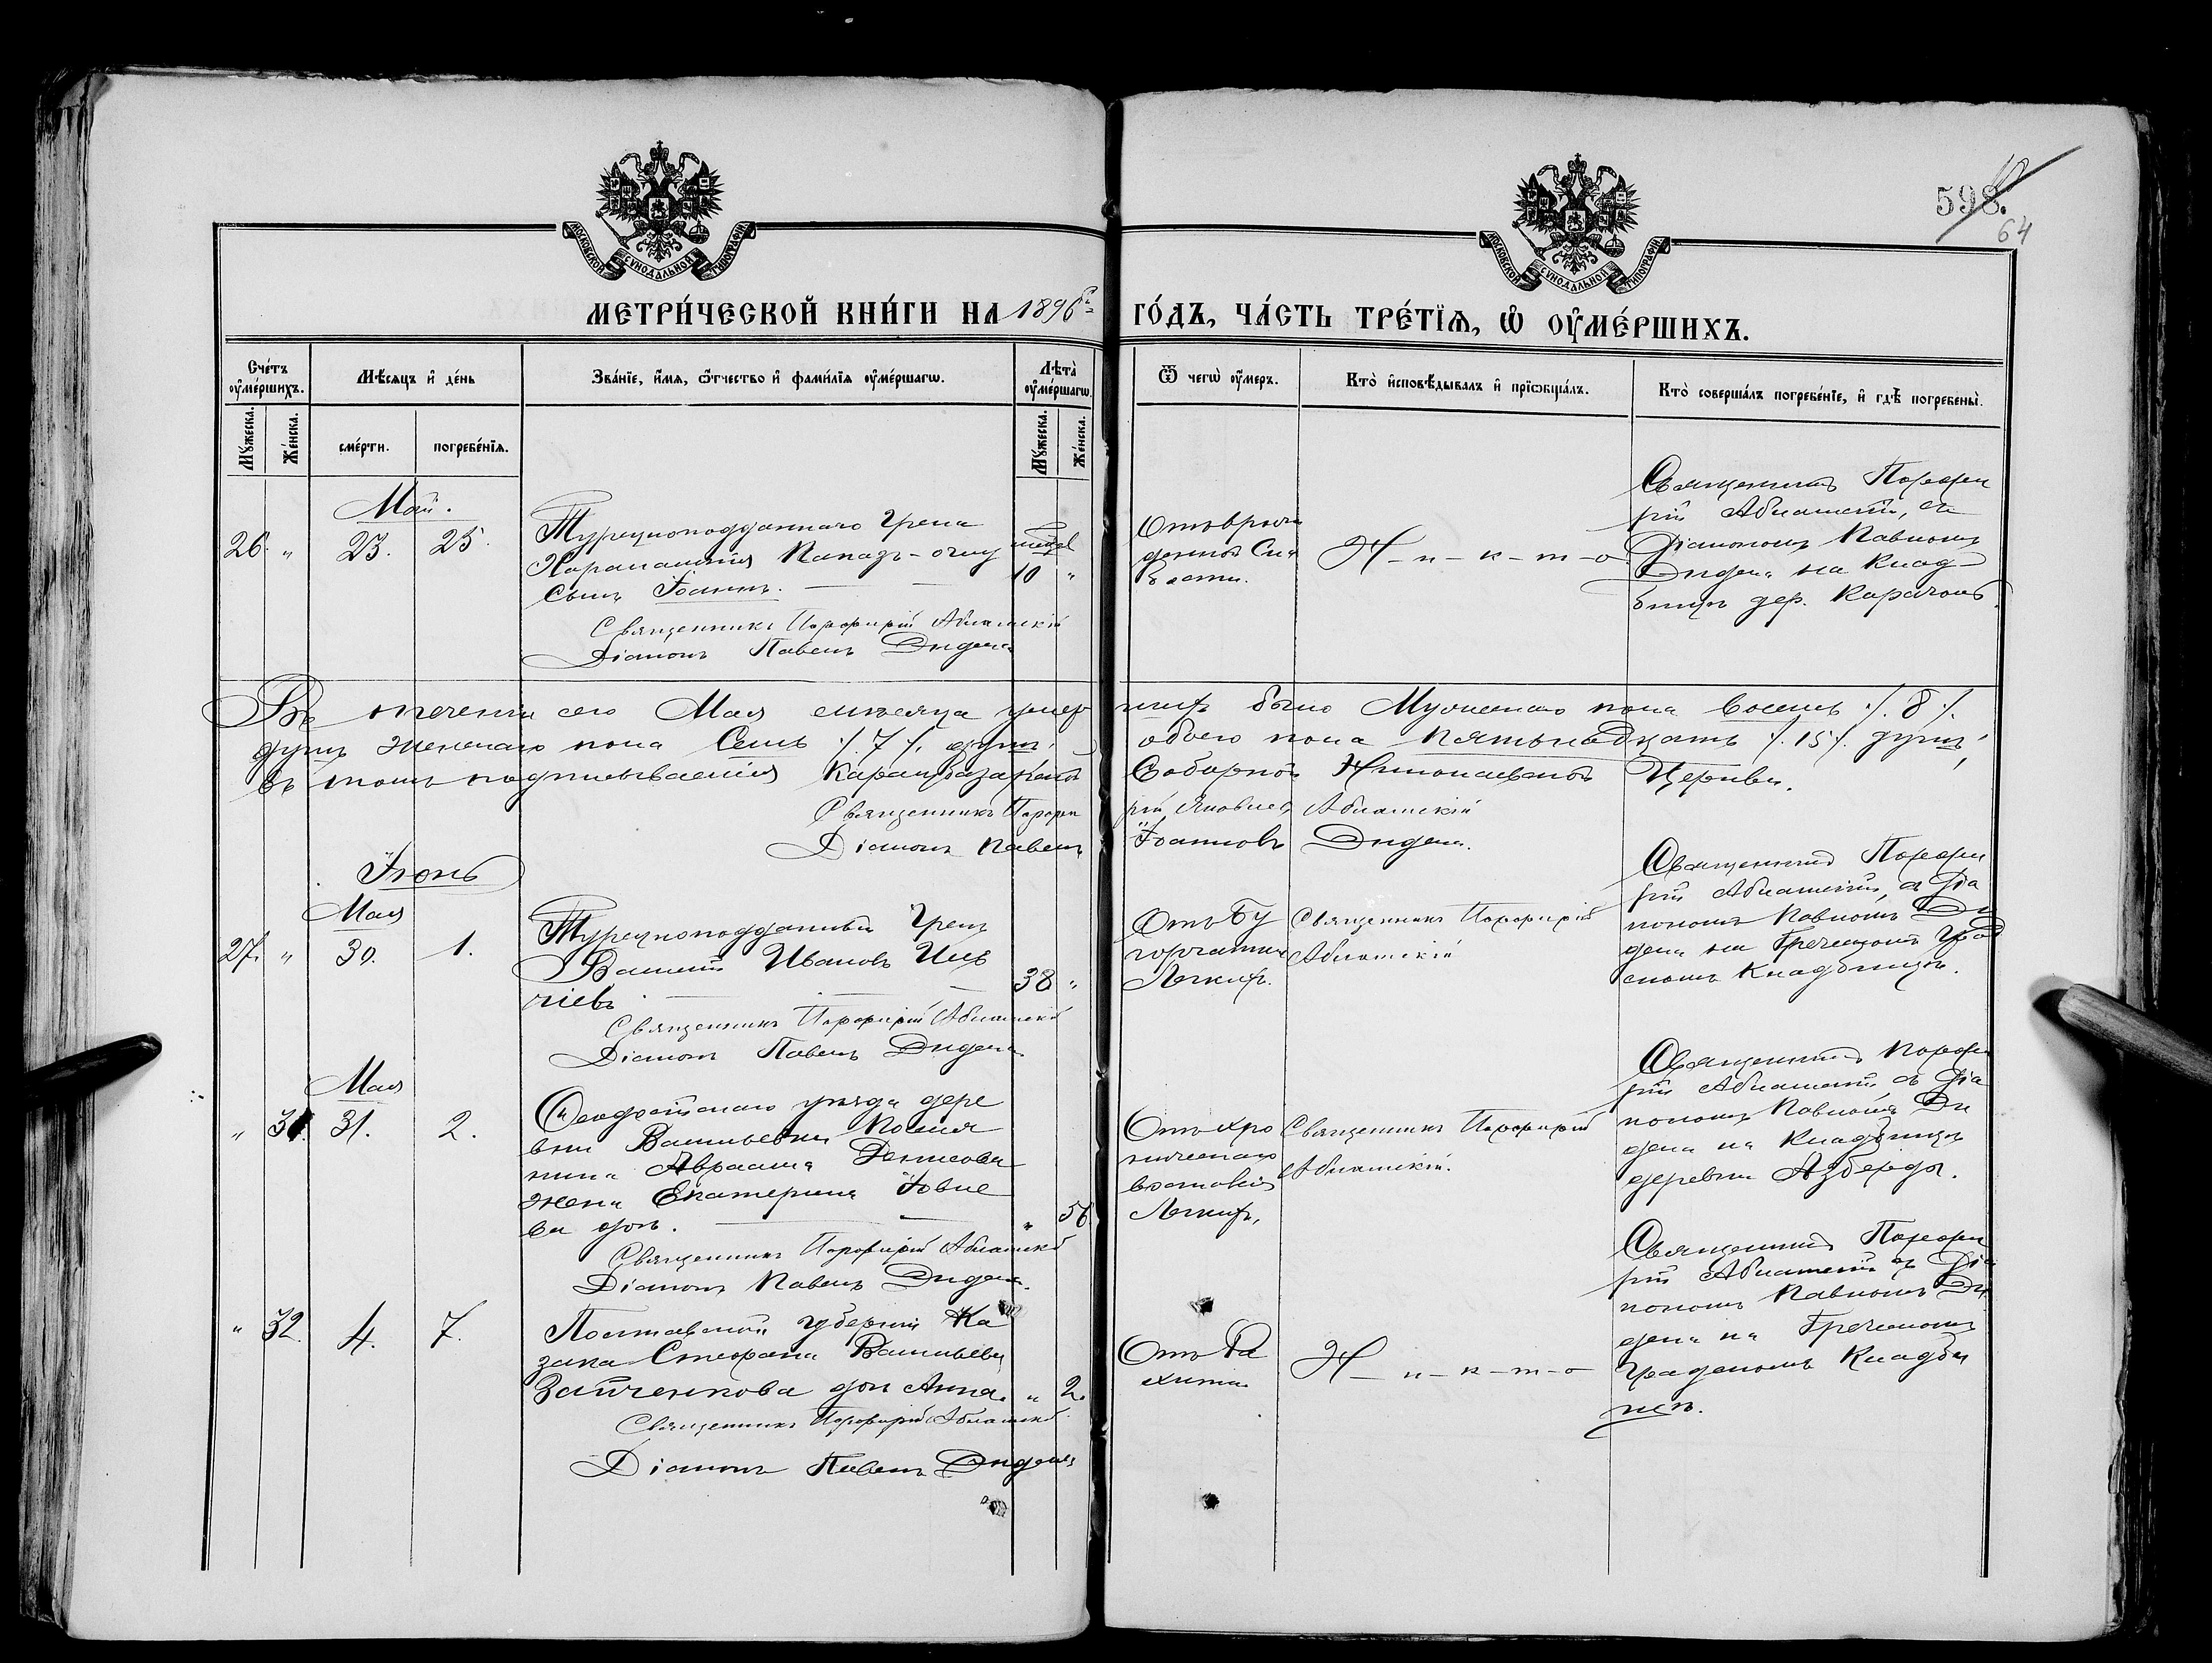 598.
64
МОСКОВСКОЙ СѴНОДАЛЬНОЙ ТИПОГРАФІИ
МОСКОВСКОЙ СѴНОДАЛЬНОЙ ТИПОГРАФІИ
МЕТРИ́ЧЕСКОЙ КНИ́ГИ НА 1896й
ГО́ДЪ, ЧА́СТЬ ТРЕ́ТЇѦ, Ѡ҆ ОУ҆МЕ́РШИХЪ.
Сче́тъ оу҆ме́ршихъ.
Мѣ́сѧцъ и҆ де́нь
Зва́нїе, и҆́мѧ, ѻ҆́тчество и҆ фами́лїѧ оу҆ме́ршагѡ.
Лѣта̀ оу҆ме́ршагѡ.
Ѿ чегѡ̀ оу҆́меръ.
Кто̀ и҆сповѣ́дывалъ и҆ прїѡбща́лъ.
Кто̀ соверша́лъ погребе́нїе, и҆ гдѣ̀ погребены̀.
Мꙋ́жеска.
Же́нска.
сме́рти.
погребе́нїѧ.
Мꙋ́жеска.
Же́нска.
Май.
26. „ 23. 25.
Турецкоподданнаго Грека
Харалампія Пападъ-оглу
сынъ Іоаннъ.
10 „
Священникъ Порфирій Абламскій
Діаконъ Павелъ Дидена
Отъ врож
денной Сла
бости.
Н-и-к-т-о
Священникъ Порфи
рій Абламскій, съ
Діакономъ Павломъ
Дидена на Клад-
бищѣ дер.
Въ теченіи сего Мая мѣсяца умер шихъ было Мужескаго пола Восемь ./. 8 ./.
душъ женскаго пола Семь ./. 7 ./. душъ, обоего пола Пятьнадцать ./. 15 ./. душъ,
въ томъ подписываемся Карасубазарской Соборной Николаевской Церкви.
Священникъ Порфи рій Яковлевъ Абламскій
Діаконъ Павелъ Іоанновъ Дидена.
Іюнь
Мая
27. „ 30. 1.
Турецкоподданный Грекъ
Василій Ивановъ
38 „
Священникъ Порфирій Абламскій
Діаконъ Павелъ Дидена
Отъ Бу
горчатки
Легкихъ.
Священникъ Порфирій
Абламскій
Священникъ Порфи
рій Абламскій, съ Діа
кономъ Павломъ Ди
дена на Греческомъ Град
скомъ Кладбищѣ.
Мая
„ 31. 31. 2.
Ѳеодосійскаго уѣзда дере
вни Васильевки Поселя
нина Авраама Денисова
жена Екатерина Іовле
ва дочь.
„ 56
Священникъ Порфирій Абламскій
Діаконъ Павелъ Дидена.
Отъ хро
ническаго
воспаленія
Легкихъ,
Священникъ Порфирій
Абламскій.
Священникъ Порфи
рій Абламскій съ Діа
кономъ Павломъ Ди
дена на Кладбищѣ
деревни Азберды.
„ 32. 4. 7.
Полтавской губерніи Ка
зака Стефана Васильева
Зайченкова дочь Анна. „ 2.
Священникъ Порфирій Абламскій
Діаконъ Павелъ Дидена
Отъ Ра
хита
Н-и-к-т-о
Священникъ Порфи
рій Абламскій съ Діа
кономъ Павломъ Ди
дена на Греческомъ
Градскомъ Кладби
щѣ.